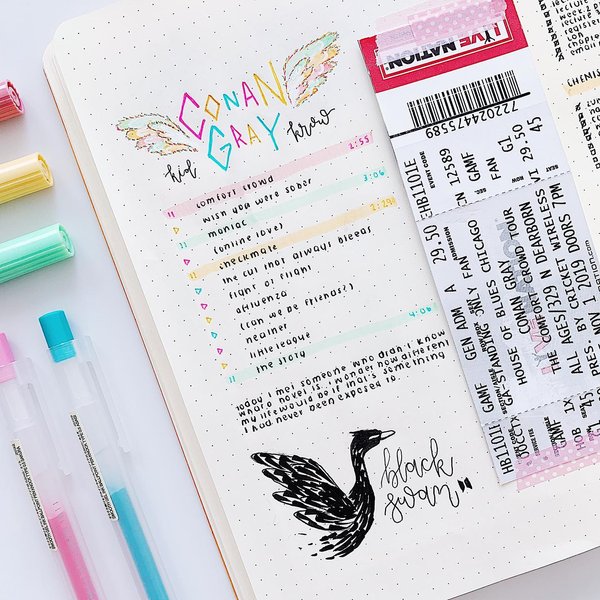 CONAN
GRAY
kid krow
comfort crowd 2:55
wish you were sober
maniac 3:06
(online love)
checkmate
the cut that always bleeds
fight or flight
affluenza
(can we be friends?)
heather
little league
the story 4:06
today i met someone who didn't know
what a novel is. i wonder how different
my life would be if that's something
i had never been exposed to...
black
swan
LIVE NATION
722024475589
EVENT CODE
EHB1101E
CN 12589
GAMF
FAN G1
29.50
A 29.50
GEN ADM
GAMF
STANDING ONLY FAN
HOUSE OF BLUES CHICAGO
CONAN GRAY
THE COMFORT CROWD TOUR
ALL AGES/329 N DEARBORN
PRES. BY CRICKET WIRELESS
NOV 1 2019 DOORS 7PM
CHEMIS